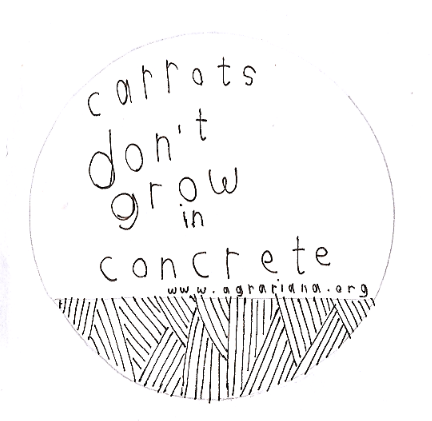 carrots
don't
grow
in
concrete
www.agrariana.org